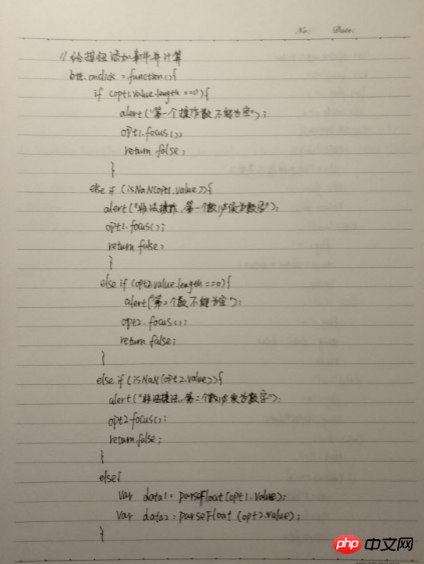 No: Date:
// 给按钮添加事件并计算
btt.onclick = function(){
if (opt1.value.length ==0){
alert("第一个操作数不能为空");
opt1.focus();
return false;
}
else if (isNaN(opt1.value)){
alert("非法操作,第一个数必须为数字");
opt1.focus();
return false;
}
else if (opt2.value.length ==0){
alert("第2个数不能为空");
opt2.focus();
return false;
}
else if (isNaN(opt2.value)){
alert("非法操作,第二个数必须为数字");
opt2.focus();
return false;
}
else{
Var data1 = parseFloat(opt1.value);
Var data2 = parseFloat (opt2.value);
}
php 中文网